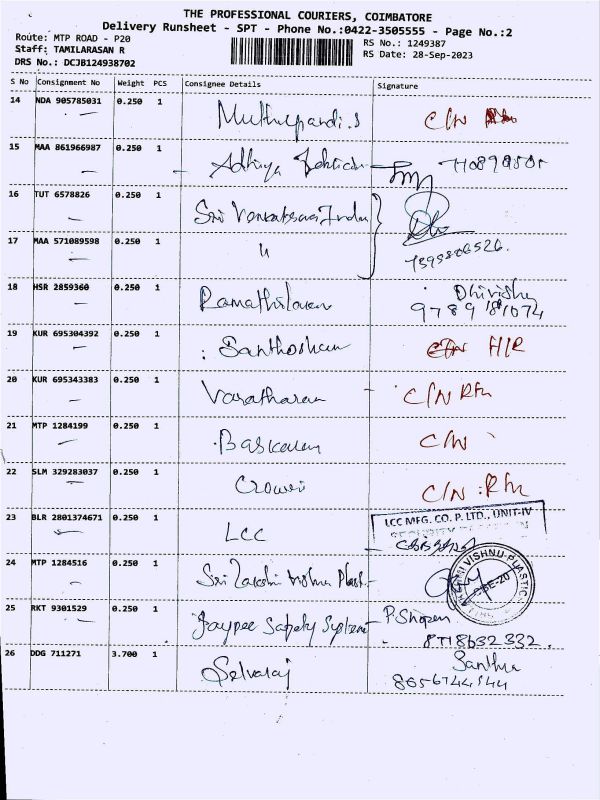 THE PROFESSIONAL COURIERS, COIMBATORE
Delivery Runsheet - SPT - Phone No.:0422-3505555 - Page No.:2
Route: MTP ROAD - P20
RS No.: 1249387
Staff: TAMILARASAN R
RS Date: 28-Sep-2023
DRS No.: DCJB124938702
S No Consignment No Weight PCS Consignee Details Signature
14 NDA 905785031 0.250 1 Muthupandi.s C/N
15 MAA 861966987 0.250 1 Adhiya
16 TUT 6578826 0.250 1 Sri
17 MAA 571089598 0.250 1 "
18 HSR 2859360 0.250 1 Ramathilavan Dhivishu
19 KUR 695304392 0.250 1 Santhosham
20 KUR 695343383 0.250 1 Varatharan C/N
21 MTP 1284199 0.250 1 Baskaran C/N
22 SLM 329283037 0.250 1 C/N
23 BLR 2801374671 0.250 1 LCC LCC MFG. CO. P. LTD., UNIT-IV
24 MTP 1284516 0.250 1 Sri VISHNU PLASTIC
25 RKT 9301529 0.250 1 Jaypee Safety Systems
8718632332.
26 DDG 711271 3.700 1 Selvaraj Santhu